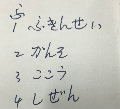 1 ふきんせい
2 かんそ
3 ここう
4 しぜん